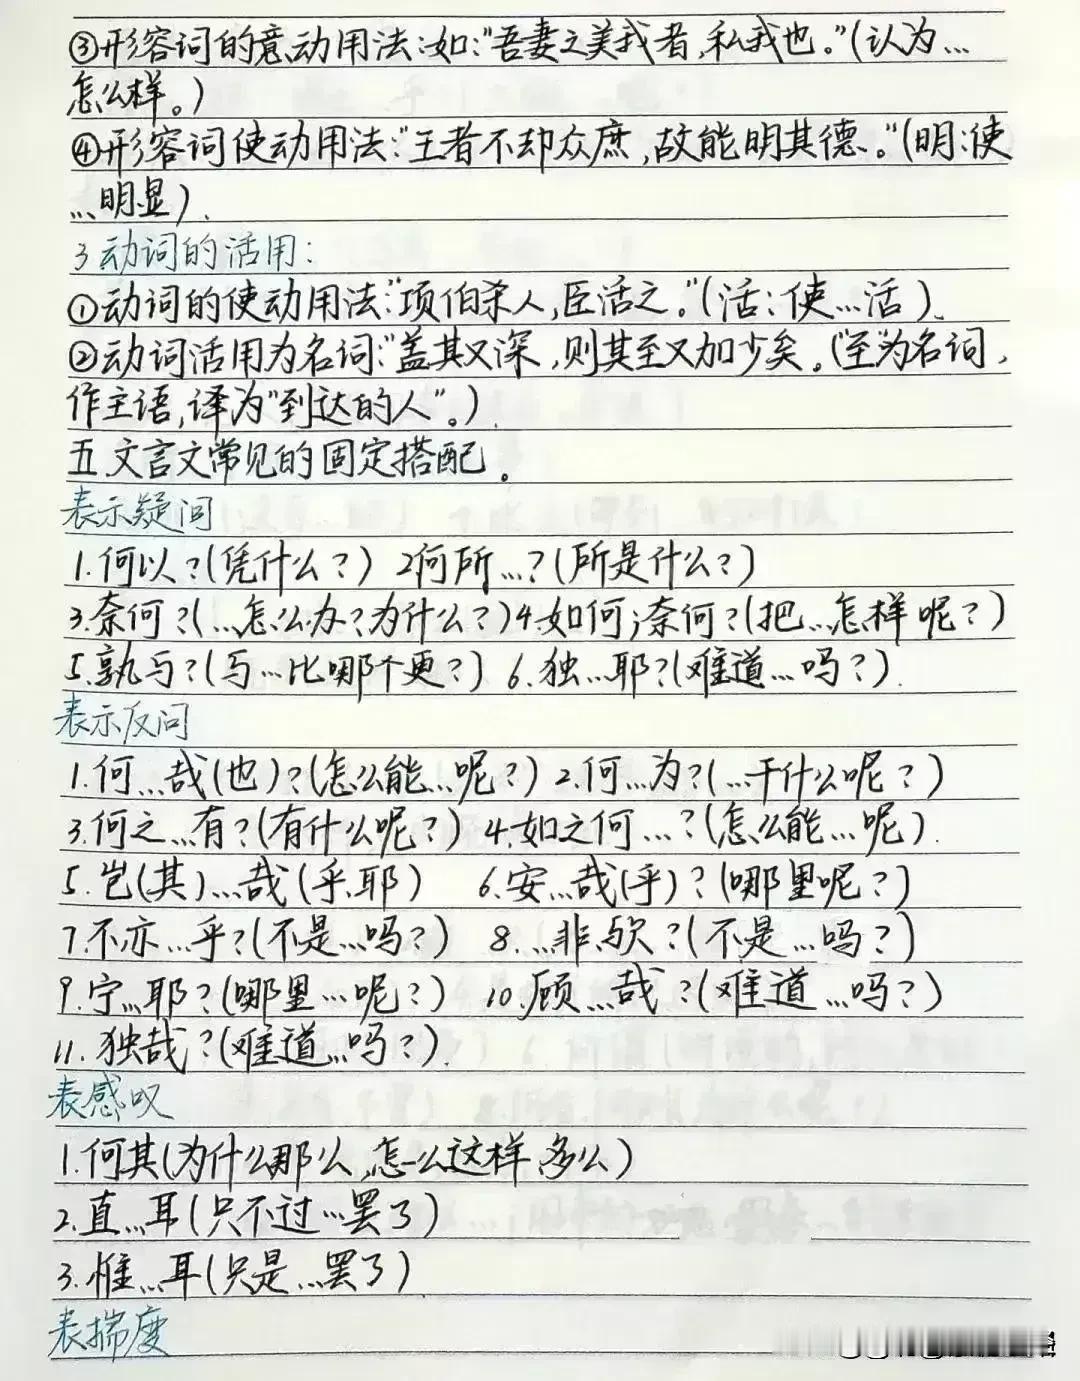 ③形容词的意动用法:如:"吾妻之美我者,私我也。"(认为...
怎么样。)
④形容词使动用法:"王者不却众庶,故能明其德。"(明:使
...明显).
3动词的活用:
①动词的使动用法:"项伯杀人,臣活之。"(活:使...活).
②动词活用为名词:"盖其又深,则其至又加少矣。("至"为名词,
作主语,译为"到达的人"。)
五.文言文常见的固定搭配。
表示疑问
1.何以?(凭什么?) 2何所...?(所是什么?)
3.奈何?(...怎么办?为什么?)4.如何;奈何?(把...怎样呢?)
5.孰与?(与...比哪个更?) 6.独...耶?(难道...吗?).
表示反问
1.何...哉(也)?(怎么能...呢?) 2.何...为?(...干什么呢?)
3.何之...有?(有什么呢?) 4.如之何...?(怎么能...呢).
5.岂(其)...哉(乎.耶) 6.安...哉(乎)?(哪里呢?)
7.不亦...乎?(不是...吗?) 8....非.欤?(不是...吗?)
9.宁...耶?(哪里...呢?) 10.顾...哉?(难道...吗?)
11.独哉?(难道...吗?).
表感叹
1.何其(为什么那么,怎么这样,多么)
2.直...耳(只不过...罢了)
3.惟...耳(只是...罢了)
表揣度